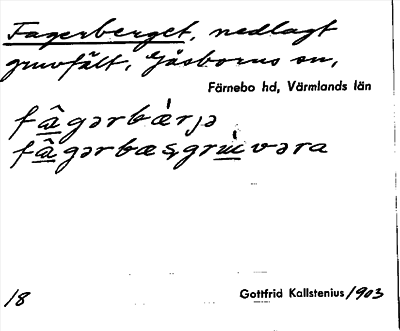 Fagerberget, nedlagt
gruvfält, Gåsborns sn,
Färnebo hd, Värmlands län
fâgərbæ̀rjə
fâgərbæşgrùvəra
18 Gottfrid Kallstenius/1903